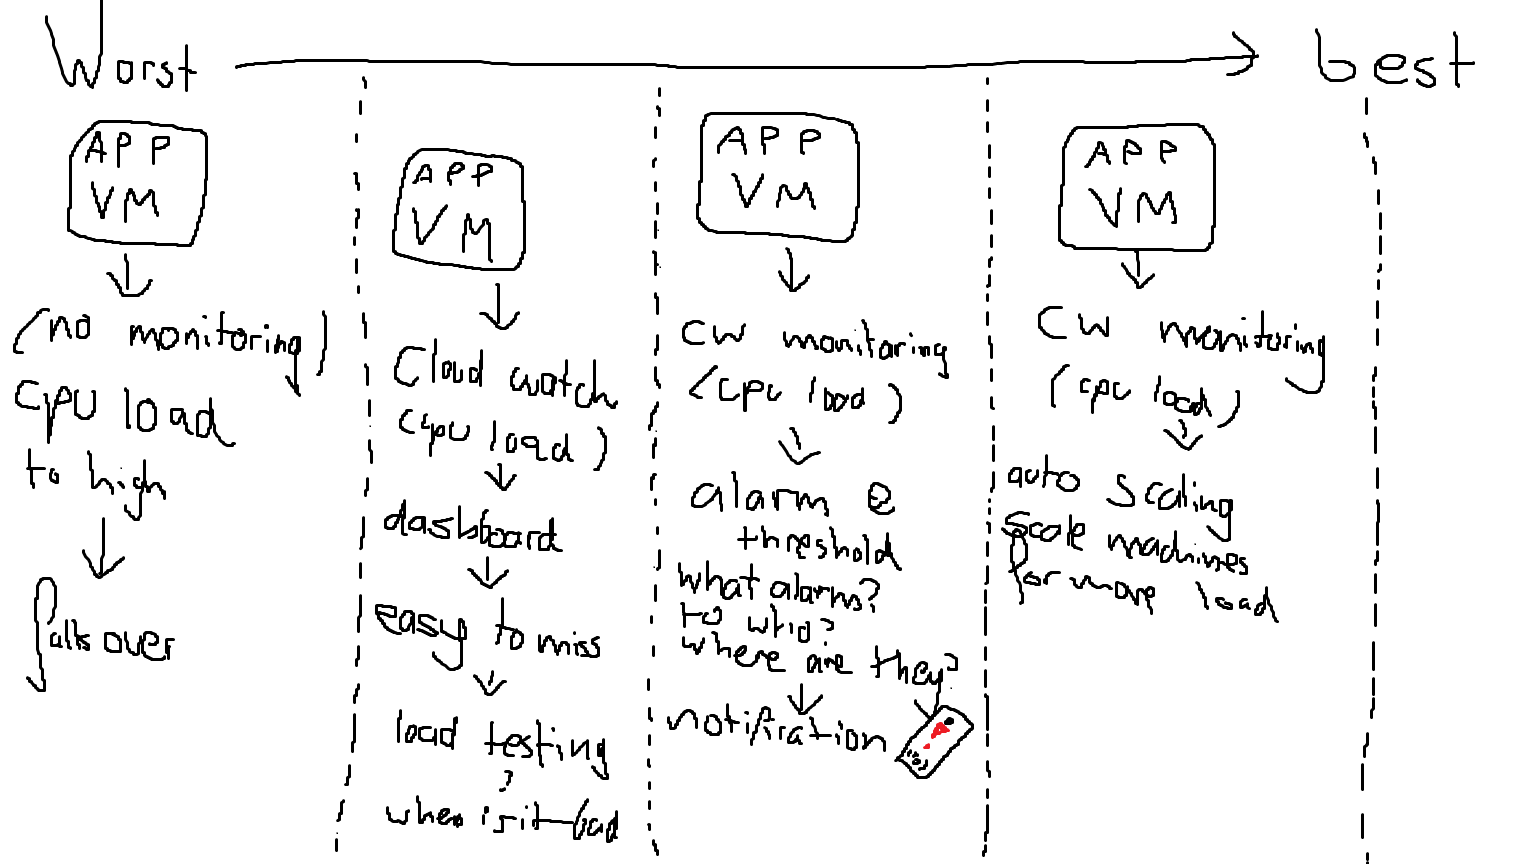 Worst
best
APP
VM
(no monitoring)
CPU load
to high
falls over
APP
VM
Cloud watch
(cpu load)
dashboard
easy to miss
load testing
?
when is it bad
APP
VM
CW monitoring
(cpu load)
alarm @
threshold
what alarms?
to who?
where are they?
notification
APP
VM
CW monitoring
(cpu load)
auto scaling
scale machines
for more load